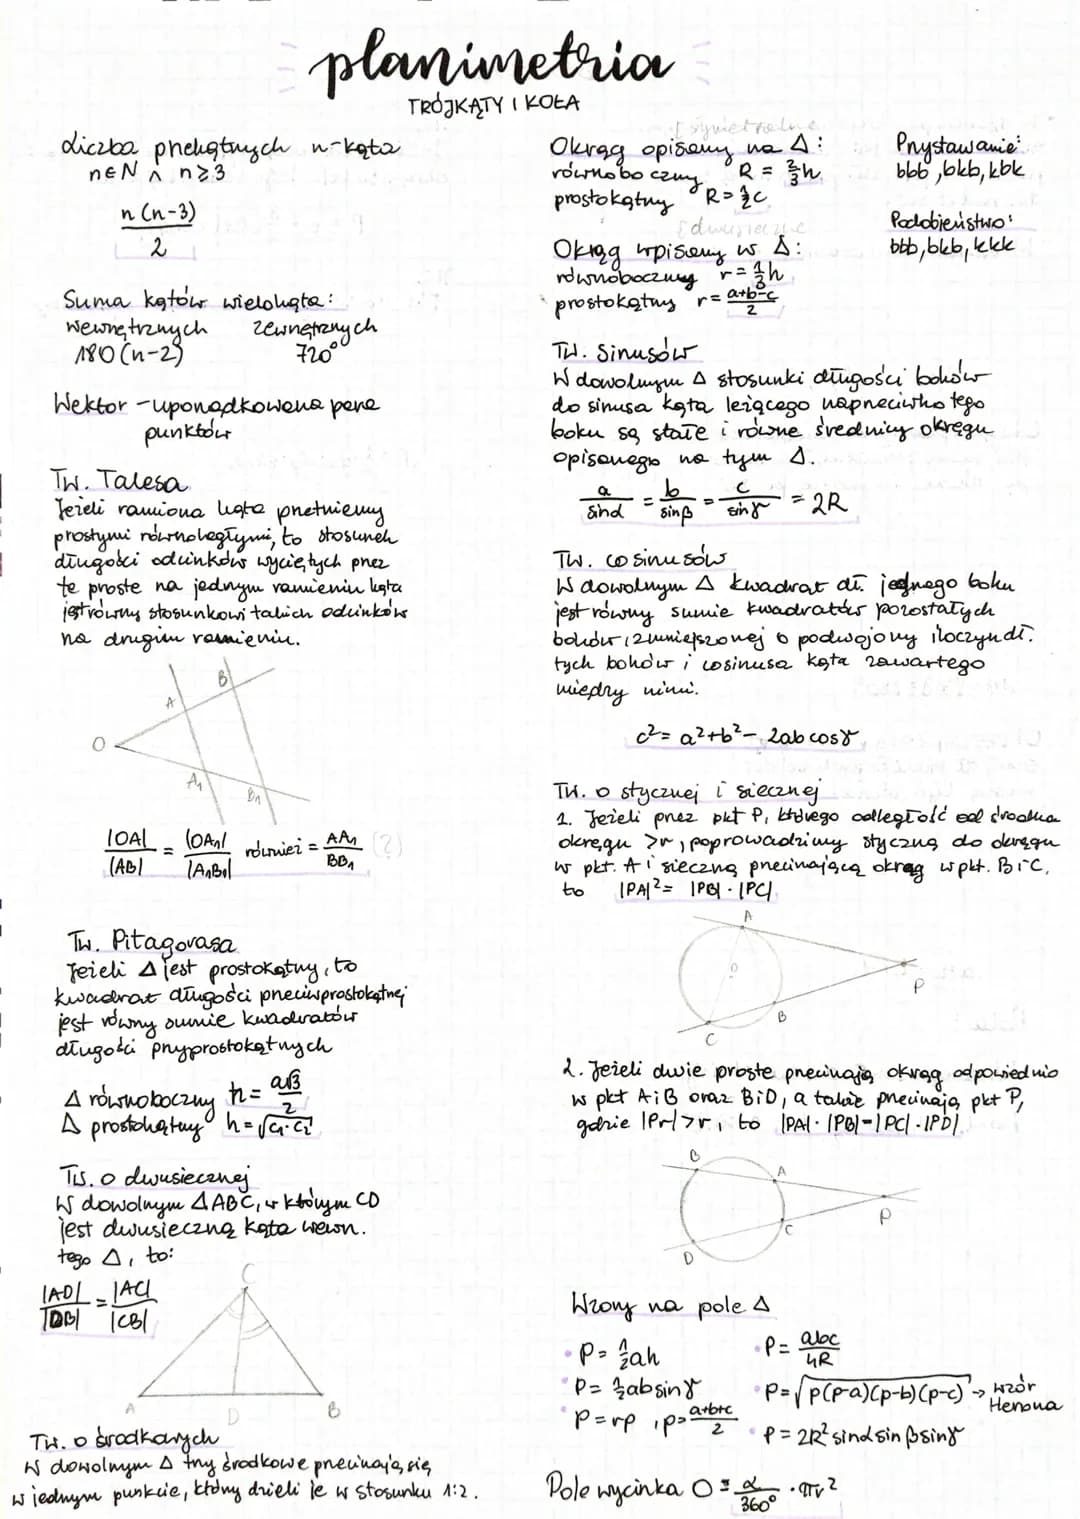 planimetria
TRÓJKĄTY I KOŁA
Liczba przekątnych n-kąta
n∈N ∧ n≥3
n(n-3)
2
Suma kątów wielokąta:
wewnętrznych zewnętrznych
180(n-2) 720°
Wektor - uporządkowana para
punktów
Tw. Talesa
Jeżeli ramiona kąta przetniemy
prostymi równoległymi, to stosunek
długości odcinków wyciętych przez
te proste na jednym ramieniu kąta
jest równy stosunkowi takich odcinków
na drugim ramieniu.
O A B A₁ B₁
|OA|/|AB| = |OA₁|/|A₁B₁| również = AA₁/BB₁ (?)
Tw. Pitagorasa
Jeżeli Δ jest prostokątny, to
kwadrat długości przeciwprostokątnej
jest równy sumie kwadratów
długości przyprostokątnych
Δ równoboczny h = a√3/2
Δ prostokątny h = √c₁·c₂
Tw. o dwusiecznej
W dowolnym ΔABC, w którym CD
jest dwusieczną kąta wewn.
tego Δ, to:
|AD|/|DB| = |AC|/|CB|
C
A D B
Tw. o środkowych
W dowolnym Δ trzy środkowe przecinają się
w jednym punkcie, który dzieli je w stosunku 1:2.
Okrąg opisany na Δ:
równoboczny R = 2/3h
prostokątny R = 1/2c
Okrąg wpisany w Δ:
równoboczny r = 1/3h
prostokątny r = a+b-c/2
Przystawanie:
bbb, bkb, kbk
Podobieństwo:
bbb, bkb, kkk
Tw. Sinusów
W dowolnym Δ stosunki długości boków
do sinusa kąta leżącego naprzeciwko tego
boku są stałe i równe średnicy okręgu
opisanego na tym Δ.
a/sinα = b/sinβ = c/sinγ = 2R
Tw. cosinusów
W dowolnym Δ kwadrat dł. jednego boku
jest równy sumie kwadratów pozostałych
boków, zmniejszonej o podwojony iloczyn dł.
tych boków i cosinusa kąta zawartego
między nimi.
c² = a²+b² - 2ab cosγ
Tw. o stycznej i siecznej
1. Jeżeli przez pkt P, którego odległość od środka
okręgu >r, poprowadzimy styczną do okręgu
w pkt. A i sieczną przecinającą okrąg w pkt. B i C,
to |PA|² = |PB|·|PC|
A
O
P
B
C
2. Jeżeli dwie proste przecinają okrąg odpowiednio
w pkt A i B oraz B i D, a także przecinają pkt P,
gdzie |Pr|>r, to |PA|·|PB|=|PC|·|PD|
B A
P
C
D
Wzory na pole Δ
• P = 1/2ah
• P = 1/2absinγ
• P = rp, p = a+b+c/2
• P = abc/4R
• P = √p(p-a)(p-b)(p-c) → wzór
Herona
• P = 2R² sinα sinβ sinγ
Pole wycinka O = α/360° · πr²